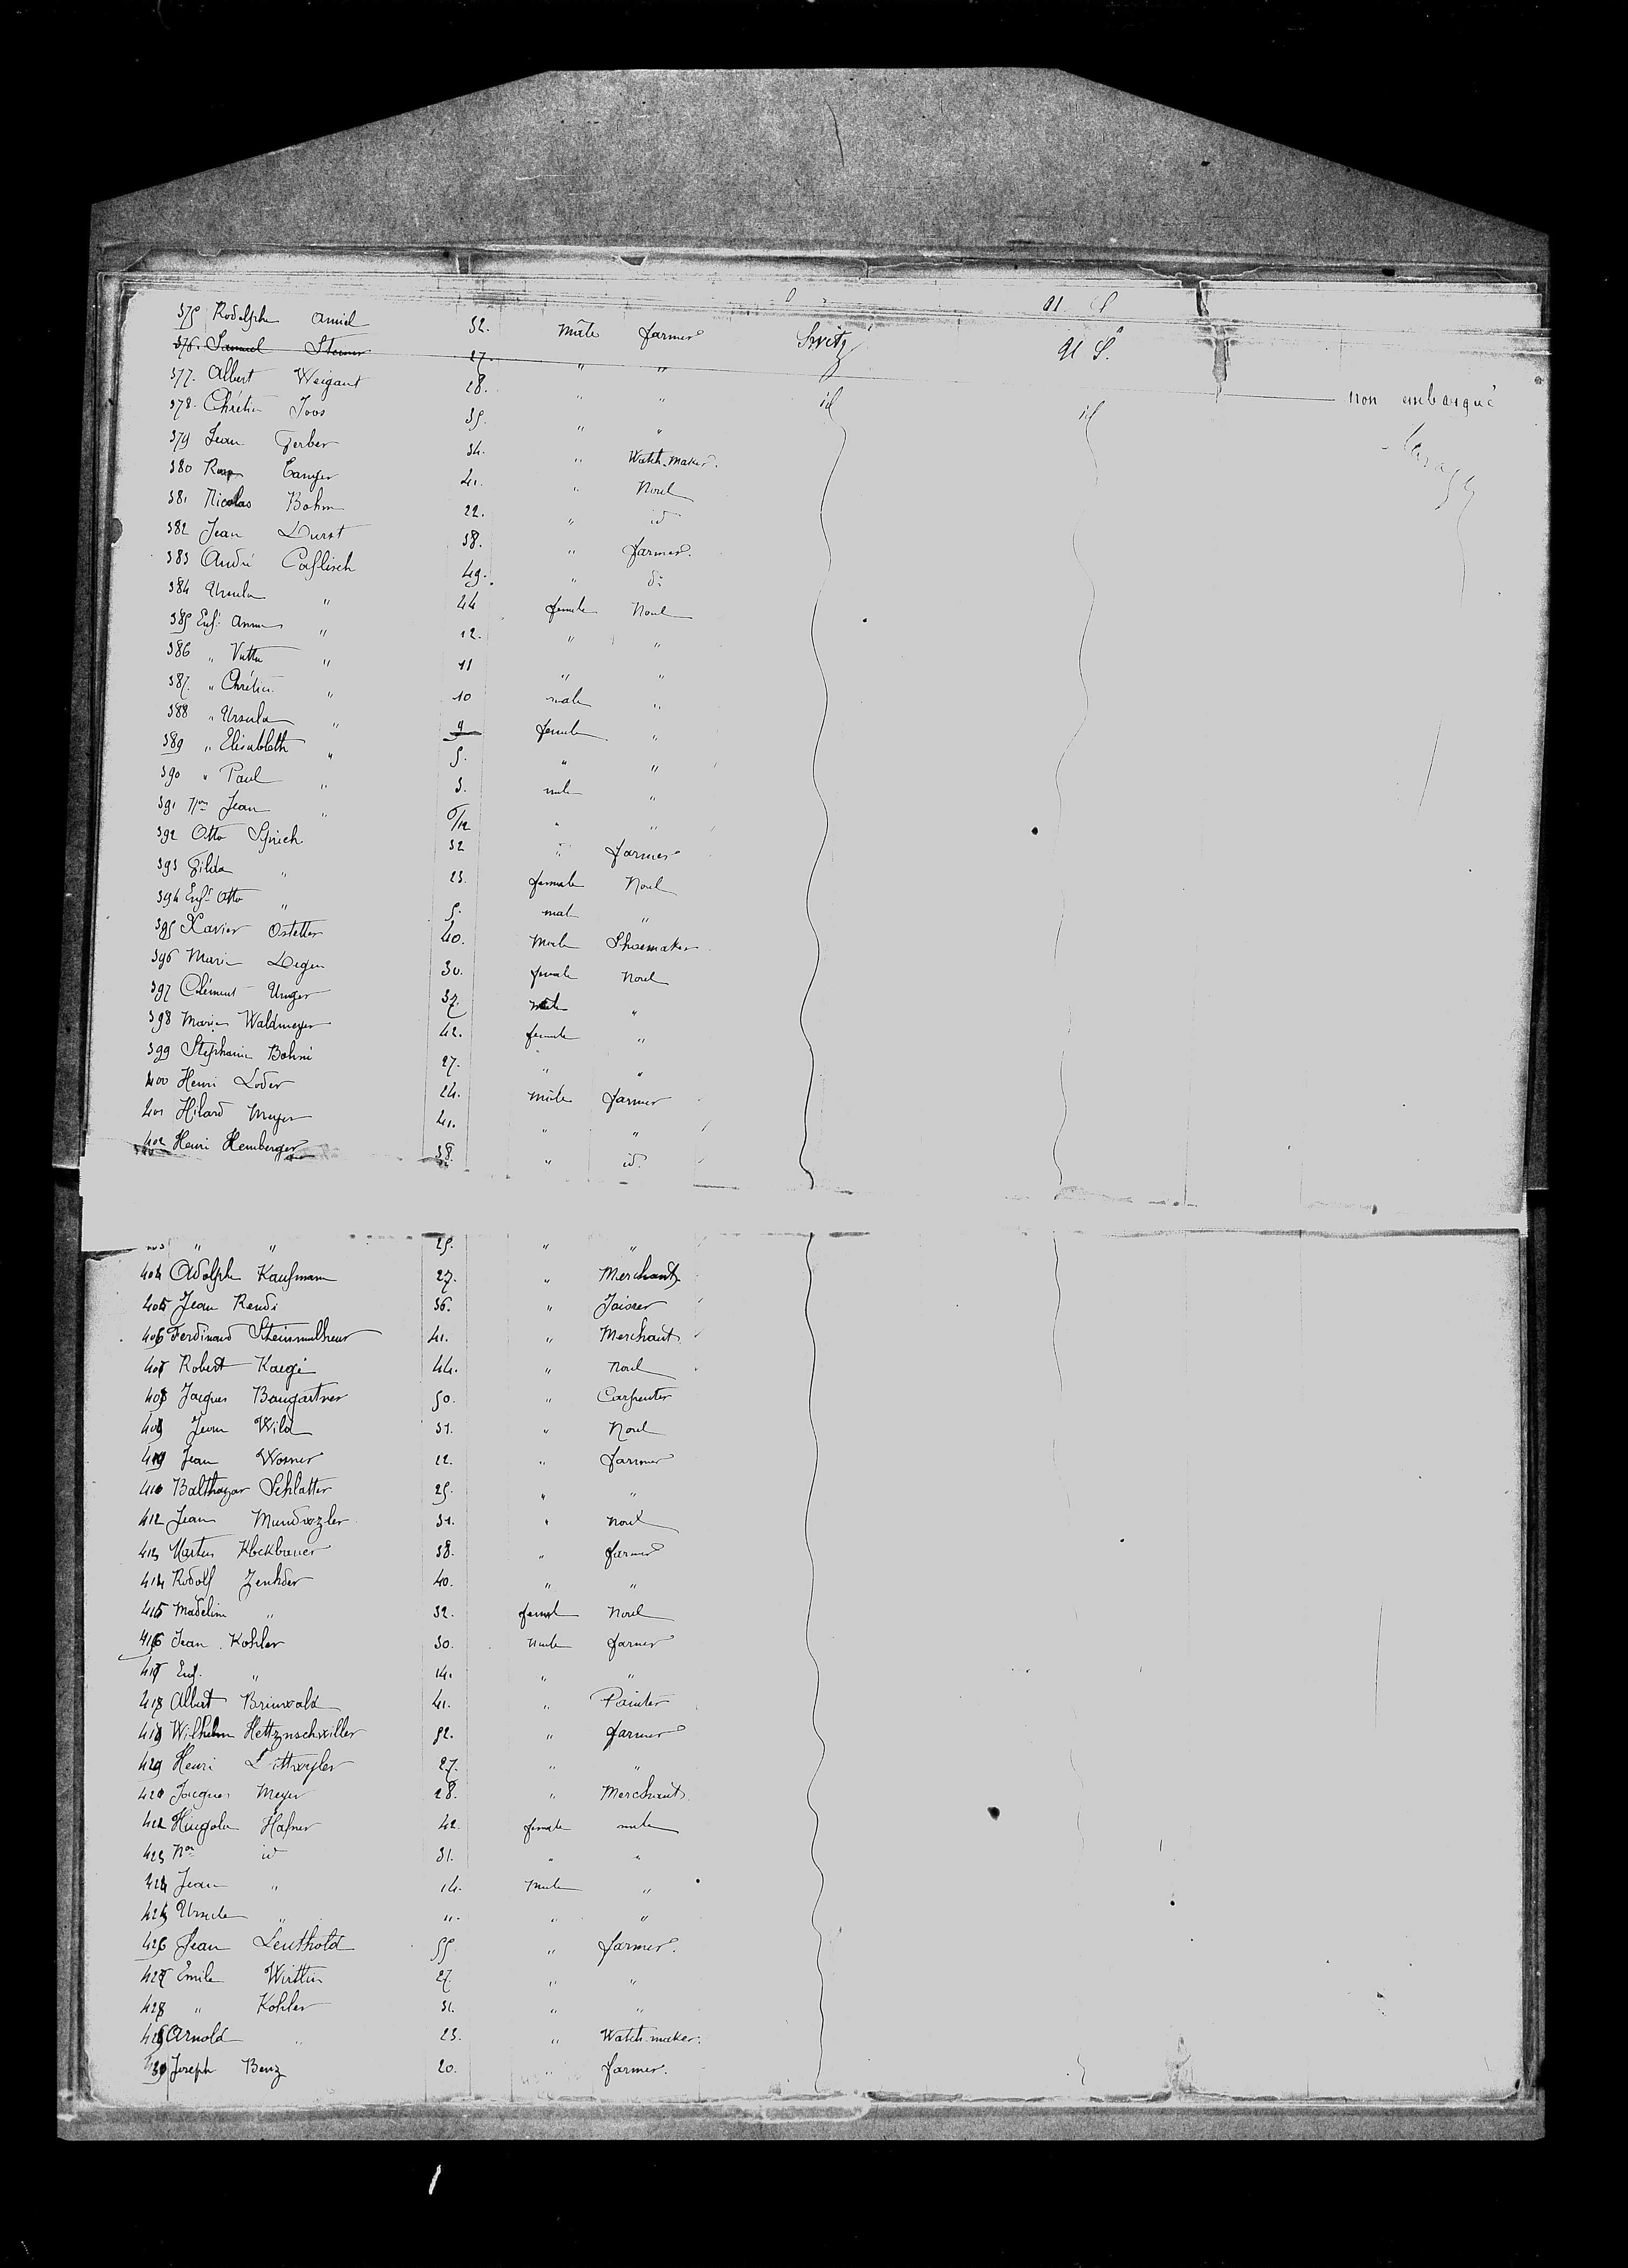 U S
375 Rodolphe Amiel 32. Male farmer Switz U S.
376. Samuel Steiner 27. " " non embarqué
377. Albert Weigant 28. " " id id
378. Chrétien Joos 35. " "
379 Jean Gerber 34. " Watch-Maker.
380 41. " Noul
381 Nicolas Bohm 22. " id
382 Jean Durst 38. " farmer.
383 André Caflisch 49. " do
384 Ursula " 44 female Noul
385 Enf. Anna " 12. " "
386 " " 11 " "
387. " Chrétien " 10 male "
388 " Ursula " 9 female "
389 " Elisableth " 5. " "
390 " Paul " 3. male "
391 Non Jean " /12 " "
392 Otto Sprich 32 " farmer
393 Gilda " 23. female Noul
394 Enf. Otto " 5. mal "
395 Xavier Ostetter 40. Male Shoemaker
396 Marie Degen 30. female Noul
397 Clément Unger 37. Male "
398 Marie Waldmeyer 42. female "
399 Stephanie Bohni 27. " "
400 Henri Loder 24. Male farmer
401 Hilard Meyer 41. " "
402 Henri Hemberger 38. " id.
" " 25. " "
404 Adolphe Kaufmann 27. " Merchant
405 Jean Rendi 36. " Joiner
406 Ferdinand 41. " Merchant
407 Robert Kaegi 44. " Noul
408 Jacques Baugartner 50. " Carpenter
409 Jean Wild 31. " Noul
Jean Worner 22. " farmer
Balthazar Schlatter 25. " "
412 Jean 31. " Noul
413 Martin 38. " farmer
414 Rodolf Zenhder 40. " "
415 Madeline " 32. femal Noul
416 Jean Kohler 30. Male farmer
417 Enf. " 14. " "
418 Albert Brinwald 41. " Painter
419 Wilhelm Hettznschwiller 52. " farmer
Henri 27. " "
Jacques Meyer 28. " Merchant.
422 Hafner 42. female
423 Non id 31. " "
424 Jean " 14. Male "
425 Ursule " 11. " "
426 Jean Leuthold 55 " farmer.
427 Emile Wirttlin 27. " "
428 " Kohler 31. " "
429 Arnold " 23. " Watch-maker.
430 Joseph Benz 20. " farmer.